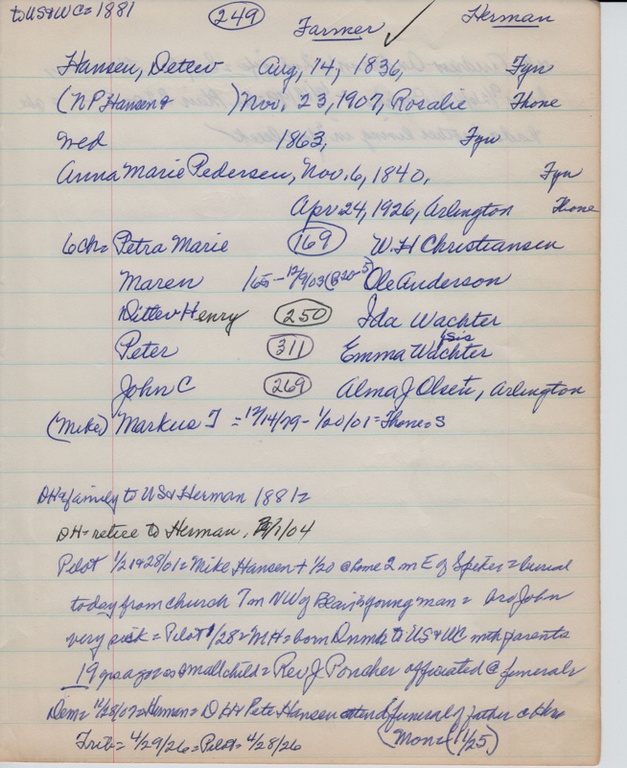 to US & WC = 1881 249 Farmer ✓ Herman
Hansen, Detlev Aug, 14, 1836, Fyn
(NP Hansen & ) Nov. 23, 1907, Rosalie Thone
wed 1863, Fyn
Anna Marie Pedersen, Nov. 6, 1840, Fyn
Apr 24, 1926, Arlington Thone
6ch = Petra Marie 169 W.H Christiansen
Maren Ole Anderson
Ditlev Henry 250 Ida Wachter
Peter 311 Emma Wachter sis
John C 269 Alma J Olsen, Arlington
(Mike) Markus T = 12/14/79 - 1/20/01 = Thone = S
DH & family to US & Herman 1881 =
DH = retire to Herman, /1/04
Pilot 1/21 & 28/01 = Mike Hansen + 1/20 @ home 2 m E of Spiker = burial
today from church 7 m NW of Blair = young man = bro John
very sick = Pilot 1/28 = MH = born Dnmk to US & WC with parents
19 yrs ago as small child = Rev J officiated @ funerals
Dem = 11/28/07 = Herman = DH & Pete Hansen attend funeral of father
Trib = 4/29/26 = Pilot = 4/28/26 (Mon = 11/25)